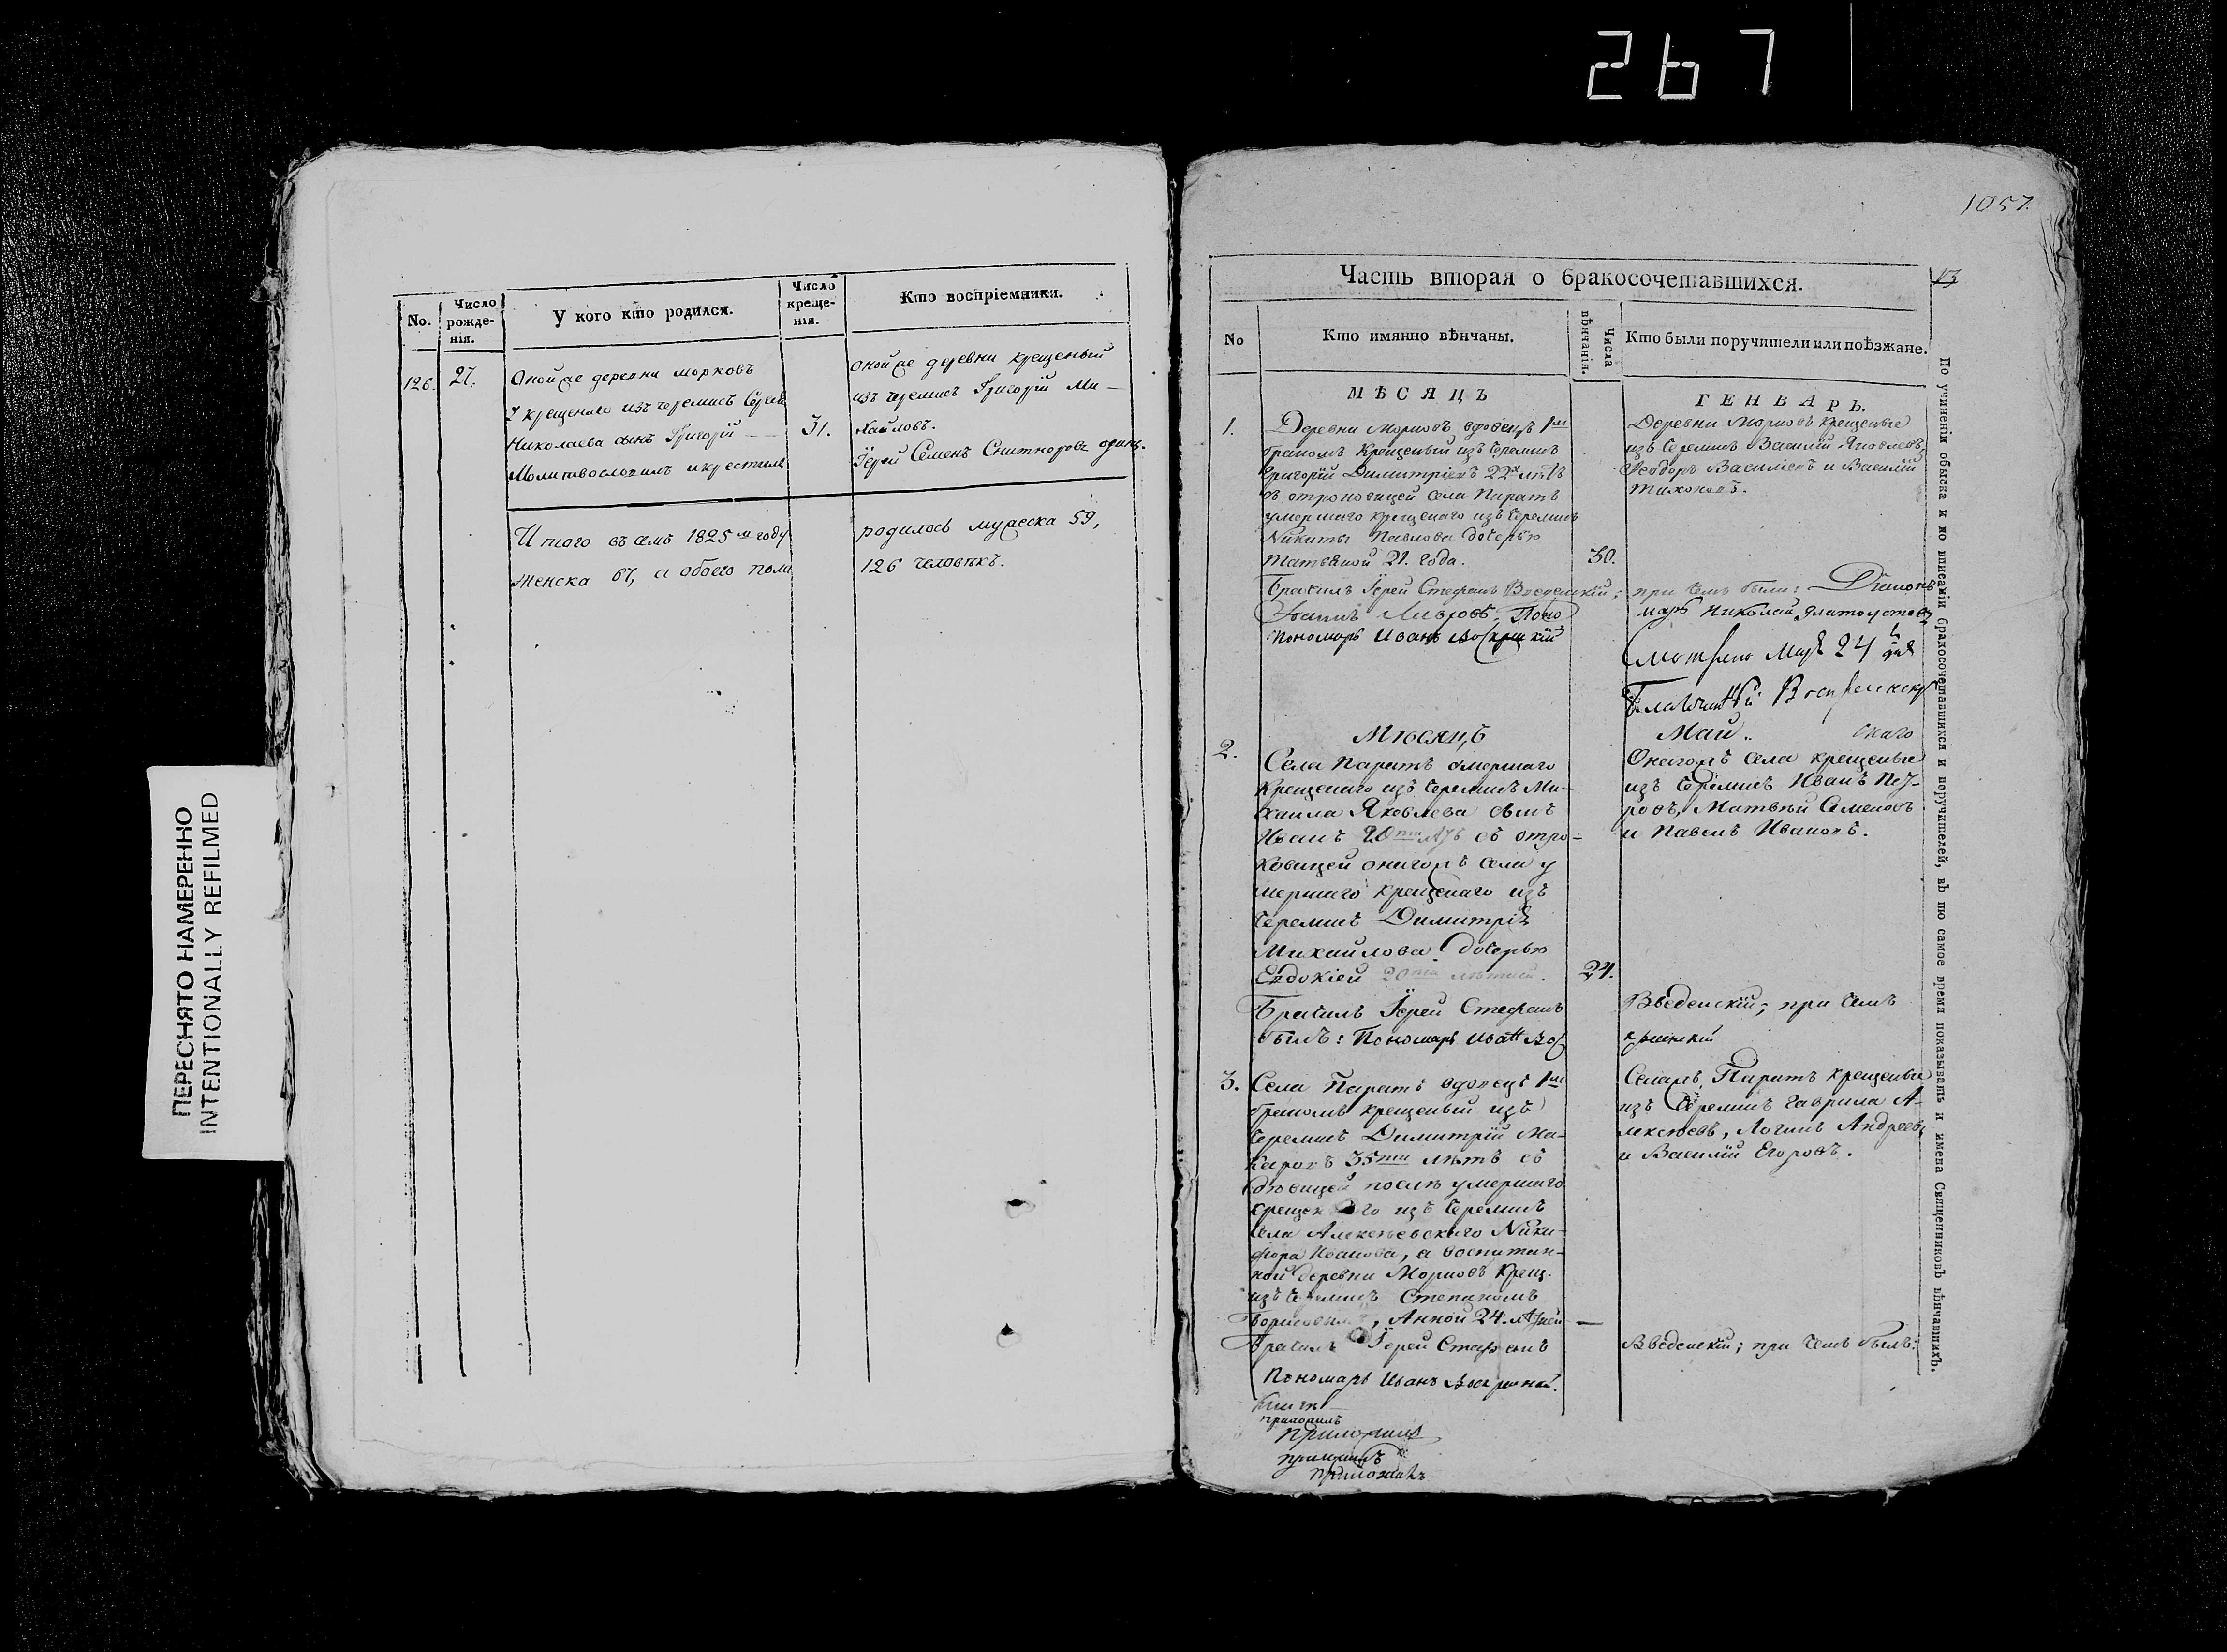 267
ПЕРЕСНЯТО НАМЕРЕННО
INTENTIONALLY REFILMED
No.
Число рожде-нія.
У кого кто родился.
Число креще-нія.
Кто воспріемники.
126.
27.
Оной же деревни Морковъ
у крещенаго изъ черемисъ Сергея
Николаева сынъ Григорій
Молитвословилъ и крестилъ
31.
оной же деревни крещеный
изъ черемисъ Григорій Ми-
хайловъ.
Іерей Семенъ одинъ.
Итого въ семъ 1825м году
женска 67, а обоего пола
родилось мужеска 59,
126 человѣкъ.
1057.
13
Часть вторая о бракосочетавшихся.
No
Кто имянно вѣнчаны.
Числа вѣнчанія.
Кто были поручители или поѣзжане.
МѢСЯЦЪ
ГЕНВАРЬ.
1.
Деревни Морковъ вдовецъ 1мъ
бракомъ крещеный изъ черемисъ
Григорій Димитріевъ 22хъ лѣтъ
съ отроковицей села Паратъ
умершаго крещенаго изъ черемисъ
Никиты Павлова дочерью
Татьяной 21. года.
30.
Деревни Морковъ крещеные
изъ черемисъ Василій Яковлевъ,
Ѳеодоръ Василіевъ и Василій
Тихоновъ.
Брачилъ Іерей Стефанъ Введенскій; при чемъ были: Діаконъ
Пономарь Иванъ
марь Николай Златоустовъ
24
Мѣсяцъ
Маи.
2.
Села Паратъ умершаго
крещенаго изъ черемисъ Ми-
хаила Яковлева сынъ
Иванъ 20ти лѣтъ съ отро-
ковицей онагожъ села у
мершаго крещенаго изъ
черемисъ Димитрія
Михайлова дочерью
Евдокіей 20ти лѣтней.
24.
Онагожъ села крещеные
изъ черемисъ Иванъ Пет-
ровъ, Матвѣй Семеновъ
и Павелъ Ивановъ.
Брачилъ Іерей Стефанъ
Введенскій; при чемъ
былъ: Пономарь Иванъ Вос
кресенскій
3.
Села Паратъ вдовецъ 1мъ
бракомъ крещеный изъ
черемисъ Димитрій Ма-
каровъ 35ти лѣтъ съ
дѣвицей послѣ умершаго
крещенаго изъ черемисъ
села Алексѣевскаго Ники-
фора Иванова, а воспитан-
ной деревни Морковъ крещ.
изъ черемисъ Степаномъ
Борисовымъ, Анной 24. лѣтней
Селажъ Паратъ крещеные
изъ черемисъ Гаврила А-
лексѣевъ, Логинъ Андреевъ
и Василій Егоровъ.
Брачилъ Іерей Стефанъ
Введенскій; при чемъ былъ:
Пономарь Иванъ Воскресенскій.
По учиненіи обыска и по вписаніи бракосочетавшихся и поручителей, въ то самое время показывать и имена Священниковъ вѣнчавшихъ.